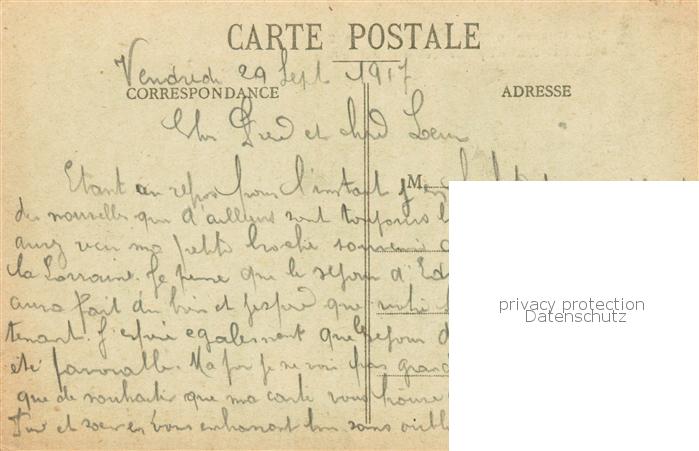 CARTE POSTALE
Vendredi 29 Sept 1917
CORRESPONDANCE
ADRESSE
Cher et chère
M.
Etant au repos pour l'instant
des nouvelles qui d'ailleurs sont toujours
aurez reçu ma petite broche souvenir
la Lorraine. Je pense que le séjour d'
aura fait du bien et j'espère que notre
tenant. J'espère également que le séjour
été favorable. Ma foi je ne vois pas grand
que de souhaiter que ma carte vous trouve
et soeur en vous embrassant sans
privacy protection
Datenschutz